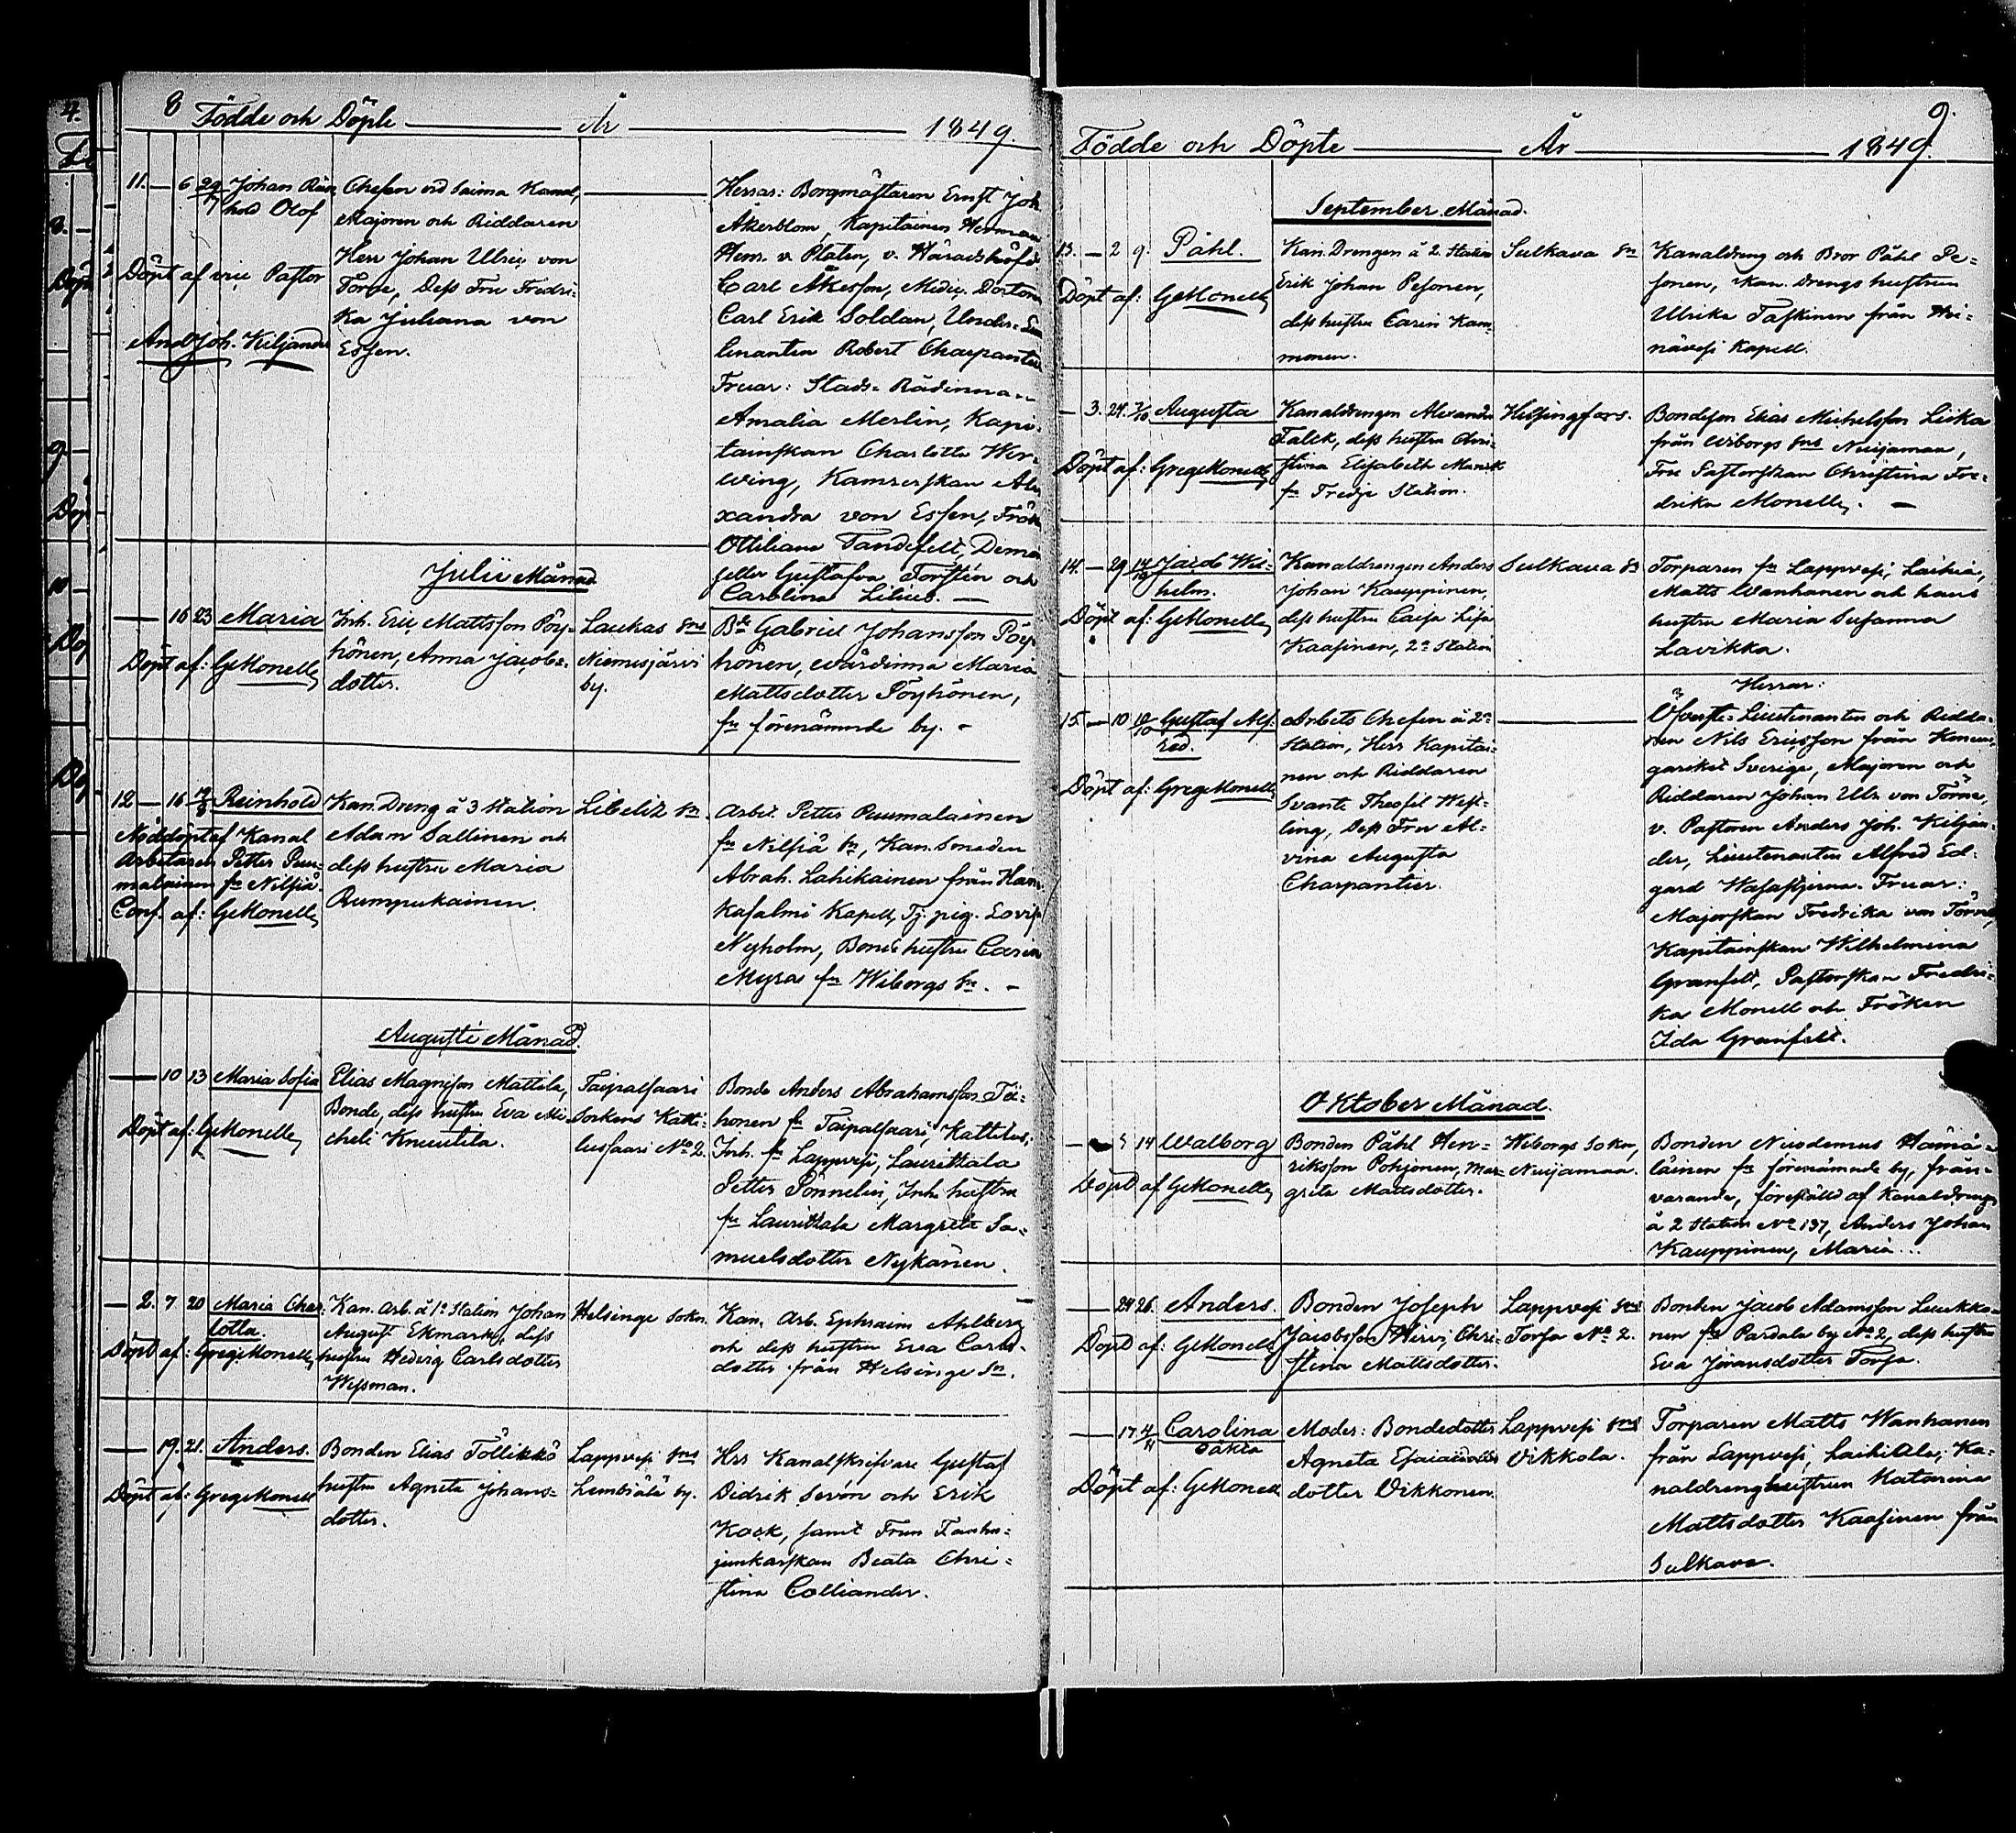 8 Födde och Döpte År 1849.
11. — 6 29/7 Johan Rein
hold Olof
Döpt af vice Pastor
And Joh. Kiljander
Chefen vid Saima Kanal,
Majoren och Riddaren
Herr Johan Ulric von
Törne, Dess Fru Fredri-
ka Juliana von
Essen.
Herrar: Borgmästaren Ernst Joh
Åkerblom, Kapitainen Herman
Hem. v. Platen, v. Häradshöfd
Carl Åkesson, Medic. Doctorn
Carl Erik Soldan, Under-Lieu
tenanten Robert Charpantier
Fruar: Stads-Rådinnan
Amalia Merlin, Kapi-
tainskan Charlotte Wer-
wing, Kamrerskan Ale
xandra von Essen, Frök
Ottiliana Tandefelt, Demoi
seller Gustafva Forstén och
Carolina Lilius. —
Julii Månad
— 16 23 Maria
Döpt af: GMonell
Inh. Eric Mattsson Pöy-
hönen, Anna Jacobs-
dotter.
Laukas sns
Niemisjärvi
by.
Bde Gabriel Johansson Pöy-
hönen, wärdinna Maria
Mattsdotter Pöyhönen,
fn förenämnde by. -
12 — 16 19/8 Reinhold
Nöddöpt af Kanal
Arbetaren Petter Puu-
malainen fn Nilsiä.
Conf. af: GMonell
Kan. Dreng å 3 Station
Adam Sallinen och
dess hustru Maria
Rumpukainen.
Libelitz sn.
Arbet. Petter Puumalainen
fn Nilsiä sn, Kan. Smeden
Abrah. Lahikainen från Han-
kasalmi Kapell, Tj. pig. Lovis
Nyholm, Bonde hustru Carin
Myras fn Wiborgs sn. -
Augusti Månad.
— 10 13 Maria Sofia
Döpt af: GMonell
Elias Magnisson Mattila,
Bonde, dess hustru Eva Mi-
cheli Knuutila.
Taipalsaari
Sockens Katti-
lussaari No 2.
Bonde Anders Abrahamsson Tii-
honen fn Taipalsaari, Kattilus;
Inh. fn Lappvesi, Laurittala
Petter Ponnelin, Inh. hustru
fn Laurittala Margreta Sa-
muelsdotter Nykänen.
— 2. 7 20 Maria Char-
lotta.
Döpt af: GregeMonell
Kan. Arb. å 1a Station Johan
August Ekmark, dess
hustru Hedvig Carlsdotter
Wessman.
Helsinge sokn.
Kan. Arb. Ephraim Ahlberg
och dess hustru Eva Carls-
dotter från Helsinge Sn.
— 19. 21. Anders.
Döpt af: GregeMonell
Bonden Elias Töllikkö
hustru Agneta Johans-
dotter.
Lappvesi sns
Lembiälä by.
Hrr Kanalskrifvare Gustaf
Didrik Serón och Erik
Kock, samt Frun Fanhn-
junkarskan Beata Chri-
stina Colliander.
9.
Födde och Döpte År 1849.
September Månad.
13. — 2 9. Påhl.
Döpt af: GMonell
Kan. Drengen å 2. Station
Erik Johan Pesonen,
dess hustru Carin Kam-
monen.
Sulkava Sn
Kanaldreng och Bror Påhl Pe-
sonen, Kan. drengs hustrun
Ulrika Taskinen från Hei-
nävesi Kapell.
— 3. 24. 7/10 Augusta
Döpt af: GregeMonell
Kanaldrengen Alexander
Falck, dess hustru Chri-
stina Elisabeth Munck
fn Tredje Station.
Helsingfors.
Bondeson Elias Michelsson Liika
från Wiborgs sns Nuijamaa,
Fru Pastorskan Christina Fre-
drika Monell. —
14. — 29 14/10 Jacob Wil-
helm.
Döpt af: GMonell
Kanaldrengen Anders
Johan Kauppinen,
dess hustru Caisa Lisa
Kaasinen, 2a Station
Sulkava Sn
Torparen fn Lappvesi, Laihia,
Matts Wanhanen och hans
hustru Maria Susanna
Lavikka.
15. — 10 10/10 Gustaf Alf-
red.
Döpt af: GregeMonell
Arbets Chefen å 2a
Station, Herr Kapitai-
nen och Riddaren
Svante Theofil West-
ling, Dess Fru Al-
vina Augusta
Charpantier.
Herrar:
Öfverste-Lieutenanten och Ridda-
ren Nils Ericsson från Konun-
gariket Sverige, Majoren och
Riddaren Johan Ulr. von Törne,
v. Pastoren Anders Joh. Kiljan-
der, Lieutenanten Alfred Ed-
gard Wasastjerna. Fruar:
Majorskan Fredrika von Törne,
Kapitainskan Wilhelmina
Granfelt, Pastorskan Fredri-
ka Monell och Fröken
Ida Granfelt.
Oktober Månad.
— 5 14 Walborg
Döpt af GMonell
Bonden Påhl Hen-
riksson Pohjonen, Mar-
greta Mattsdotter.
Wiborgs Sokn,
Nuijamaa.
Bonden Nicodemus Hämä-
läinen fn förenämnde by, från-
varande, förestäld af Kanaldreng
å 2 Station No 137, Anders Johan
Kauppinen, Maria ...
— 24 26. Anders.
Döpt af: GMonell
Bonden Joseph
Jacobsson Hirvi, Chri-
stina Mattsdotter.
Lappvesi sns
Torsa No 2.
Bonden Jacob Adamsson Luukko-
nen fn Pardala by No 2, dess hustru
Eva Göransdotter Torsa.
— 17 4/11 Carolina
oäkta
Döpt af: GMonell
Moder: Bondedotter
Agneta Esaiædotter
dotter Vikkonen.
Lappvesi sns
Vikkola.
Torparen Matts Wanhanen
från Lappvesi, Laihiala; Ka-
naldrenghustrun Katarina
Mattsdotter Kaasinen från
Sulkava.